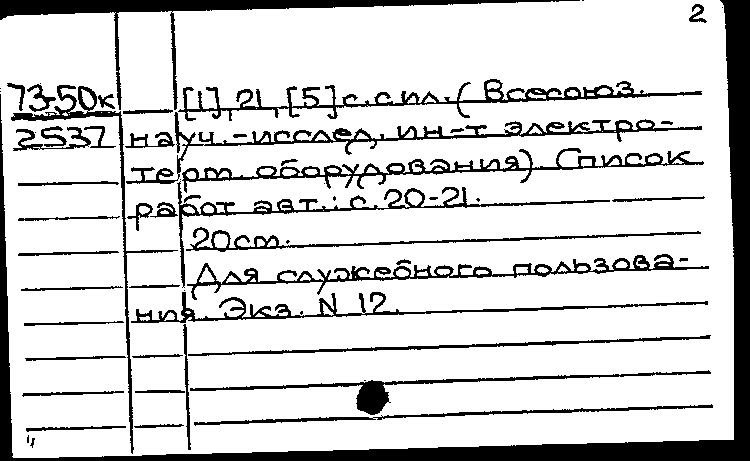 2
73-50к [1], 21, [5] с. с ил. ( Всесоюз.
2537 науч.-исслед. ин-т электро-
терм. оборудования). Список
работ авт.: с. 20-21.
20 см.
Для служебного пользова-
ния. Экз. N 12.